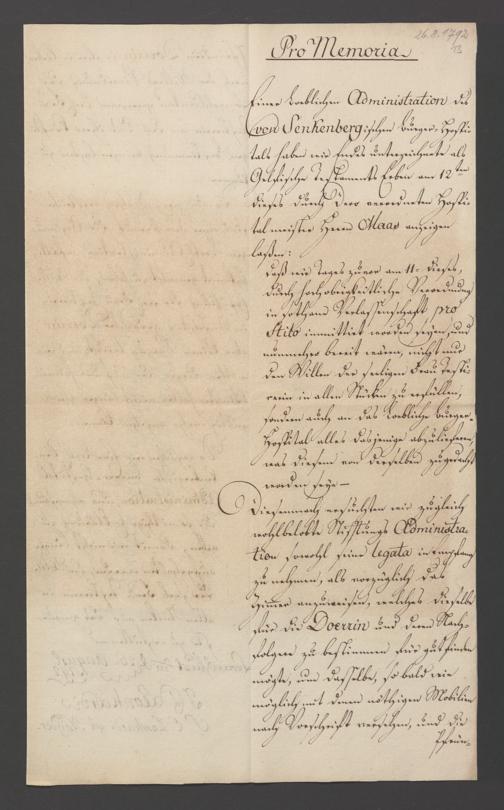 26.8.1792
13
Pro Memoria
Einer Loeblichen Administration des
von Senkenbergischen Burger-Hospi-
tals haben wir Endes unterzeichnete als
Testaments Erben am 12ten
dieses durch Dero verordneten Hospi-
talmeister Herrn Maas anzeigen
laßen:
daß wir Tages zuvor am 11. dieses,
durch hochobrigkeitliche Verordnung
in sothane Verlassenschaft pro
Stito immittirt worden seyen, und
nunmehro bereit wären, nicht nur
den Willen der seeligen Frau Testi-
rerin in allen Stücken zu erfüllen,
sondern auch an das Loebliche Burger-
Hospital alles dasjenige abzuliefern,
was diesem von derselben zugedacht
worden seye.
Diesemnach ersuchten wir zugleich
wohlbelobte Stifftungs Administra-
tion sowohl seine legata in empfang
zu nehmen, als vorzüglich das
Zimer anzuweisen, welches dieselbe
für die Doerrin und deren Nach-
folgere zu bestimmen für gut finden
mögte, um dasselbe, so bald wie
möglich mit denen nöthigen Mobilien
nach Vorschrifft versehen, und die
Pfrün-